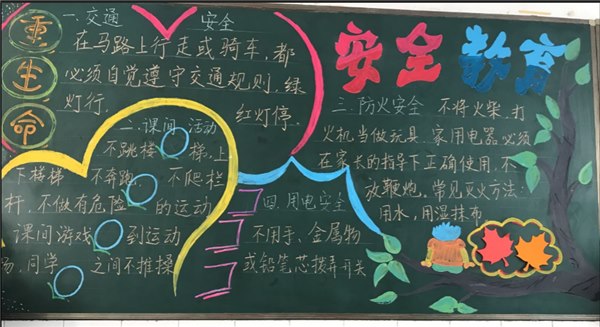 重
生
命
安全教育
一.交通 安全
在马路上行走或骑车,都
必须自觉遵守交通规则,绿
灯行, 红灯停.
二.课间 活动
不跳楼 梯.上
下楼梯 不奔跑 不爬栏
杆,不做有危险 的运动
课间游戏 到运动
场,同学 之间不推搡
三.防火安全 不将火柴.打
火机当做玩具.家用电器必须
在家长的指导下正确使用,不
放鞭炮,常见灭火方法:
用水,用湿抹布
四.用电安全
不用手、金属物
或铅笔芯拨弄开关